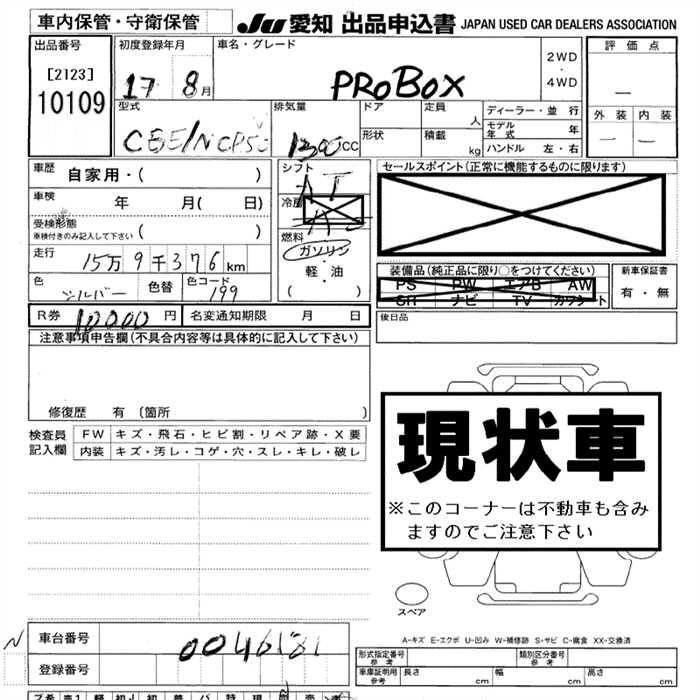 車内保管・守衛保管
JU 愛知 出品申込書 JAPAN USED CAR DEALERS ASSOCIATION
出品番号
[2123]
10109
初度登録年月
17 8月
車名・グレード
PROBOX
2WD
・
4WD
評価点
—
外装 内装
— —
型式
排気量
1300cc
ドア
定員
人
形状
積載
kg
ディーラー・並行
モデル年式 年
ハンドル 左・右
車歴 自家用・( )
車検 年 月( 日)
受検形態
車検付きのみ記入して下さい ( )
走行 15万9千376km
色 シルバー 色替 色コード 199
シフト
AT
冷房
燃料
ガソリン
・
軽・油
( )
セールスポイント(正常に機能するものに限ります)
装備品(純正品に限り○をつけてください)
PS PW エアB AW
SR ナビ TV カワシート
新車保証書
有・無
後日品
R券 10000円 名変通知期限 月 日
注意事項申告欄(不具合内容等は具体的に記入して下さい)
修復歴 有 〔箇所 〕
検査員
記入欄
FW キズ・飛石・ヒビ割・リペア跡・X要
内装 キズ・汚レ・コゲ・穴・スレ・キレ・破レ
現状車
※このコーナーは不動車も含み
ますのでご注意下さい
スペア
A-キズ E-エクボ U-凹み W-補修跡 S-サビ C-腐食 XX-交換済
N 車台番号 0046181
登録番号
形式指定番号
参考
類別区分番号
参考
車庫証明用
参考
長さ cm 幅 cm 高さ cm